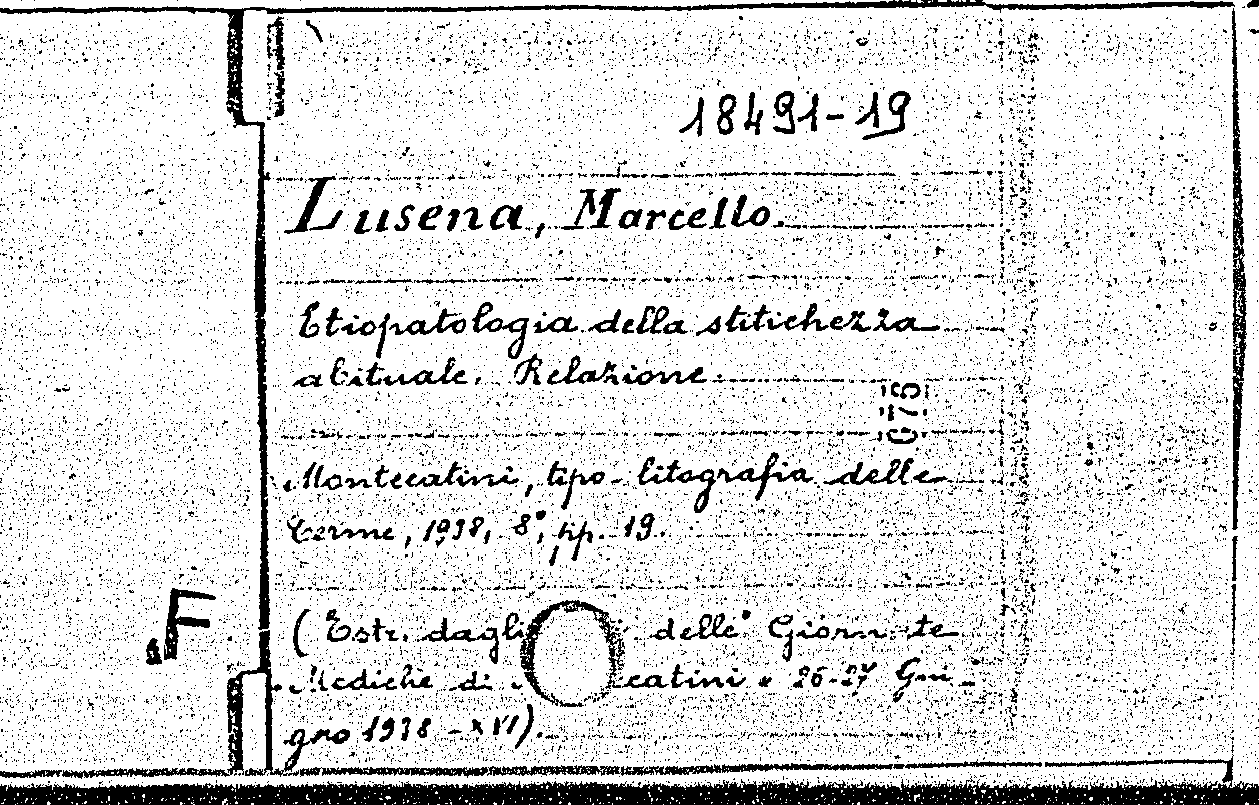 18491-19
Lusena, Marcello.
Etiopatologia della stitichezza
abituale. Relazione.
Montecatini, tipo-litografia delle
Terme, 1938, 8°, pp. 19.
(Estr. dagli delle "Giornate
Mediche di catini" 26-27 Giu-
gno 1938 - XVI).
F